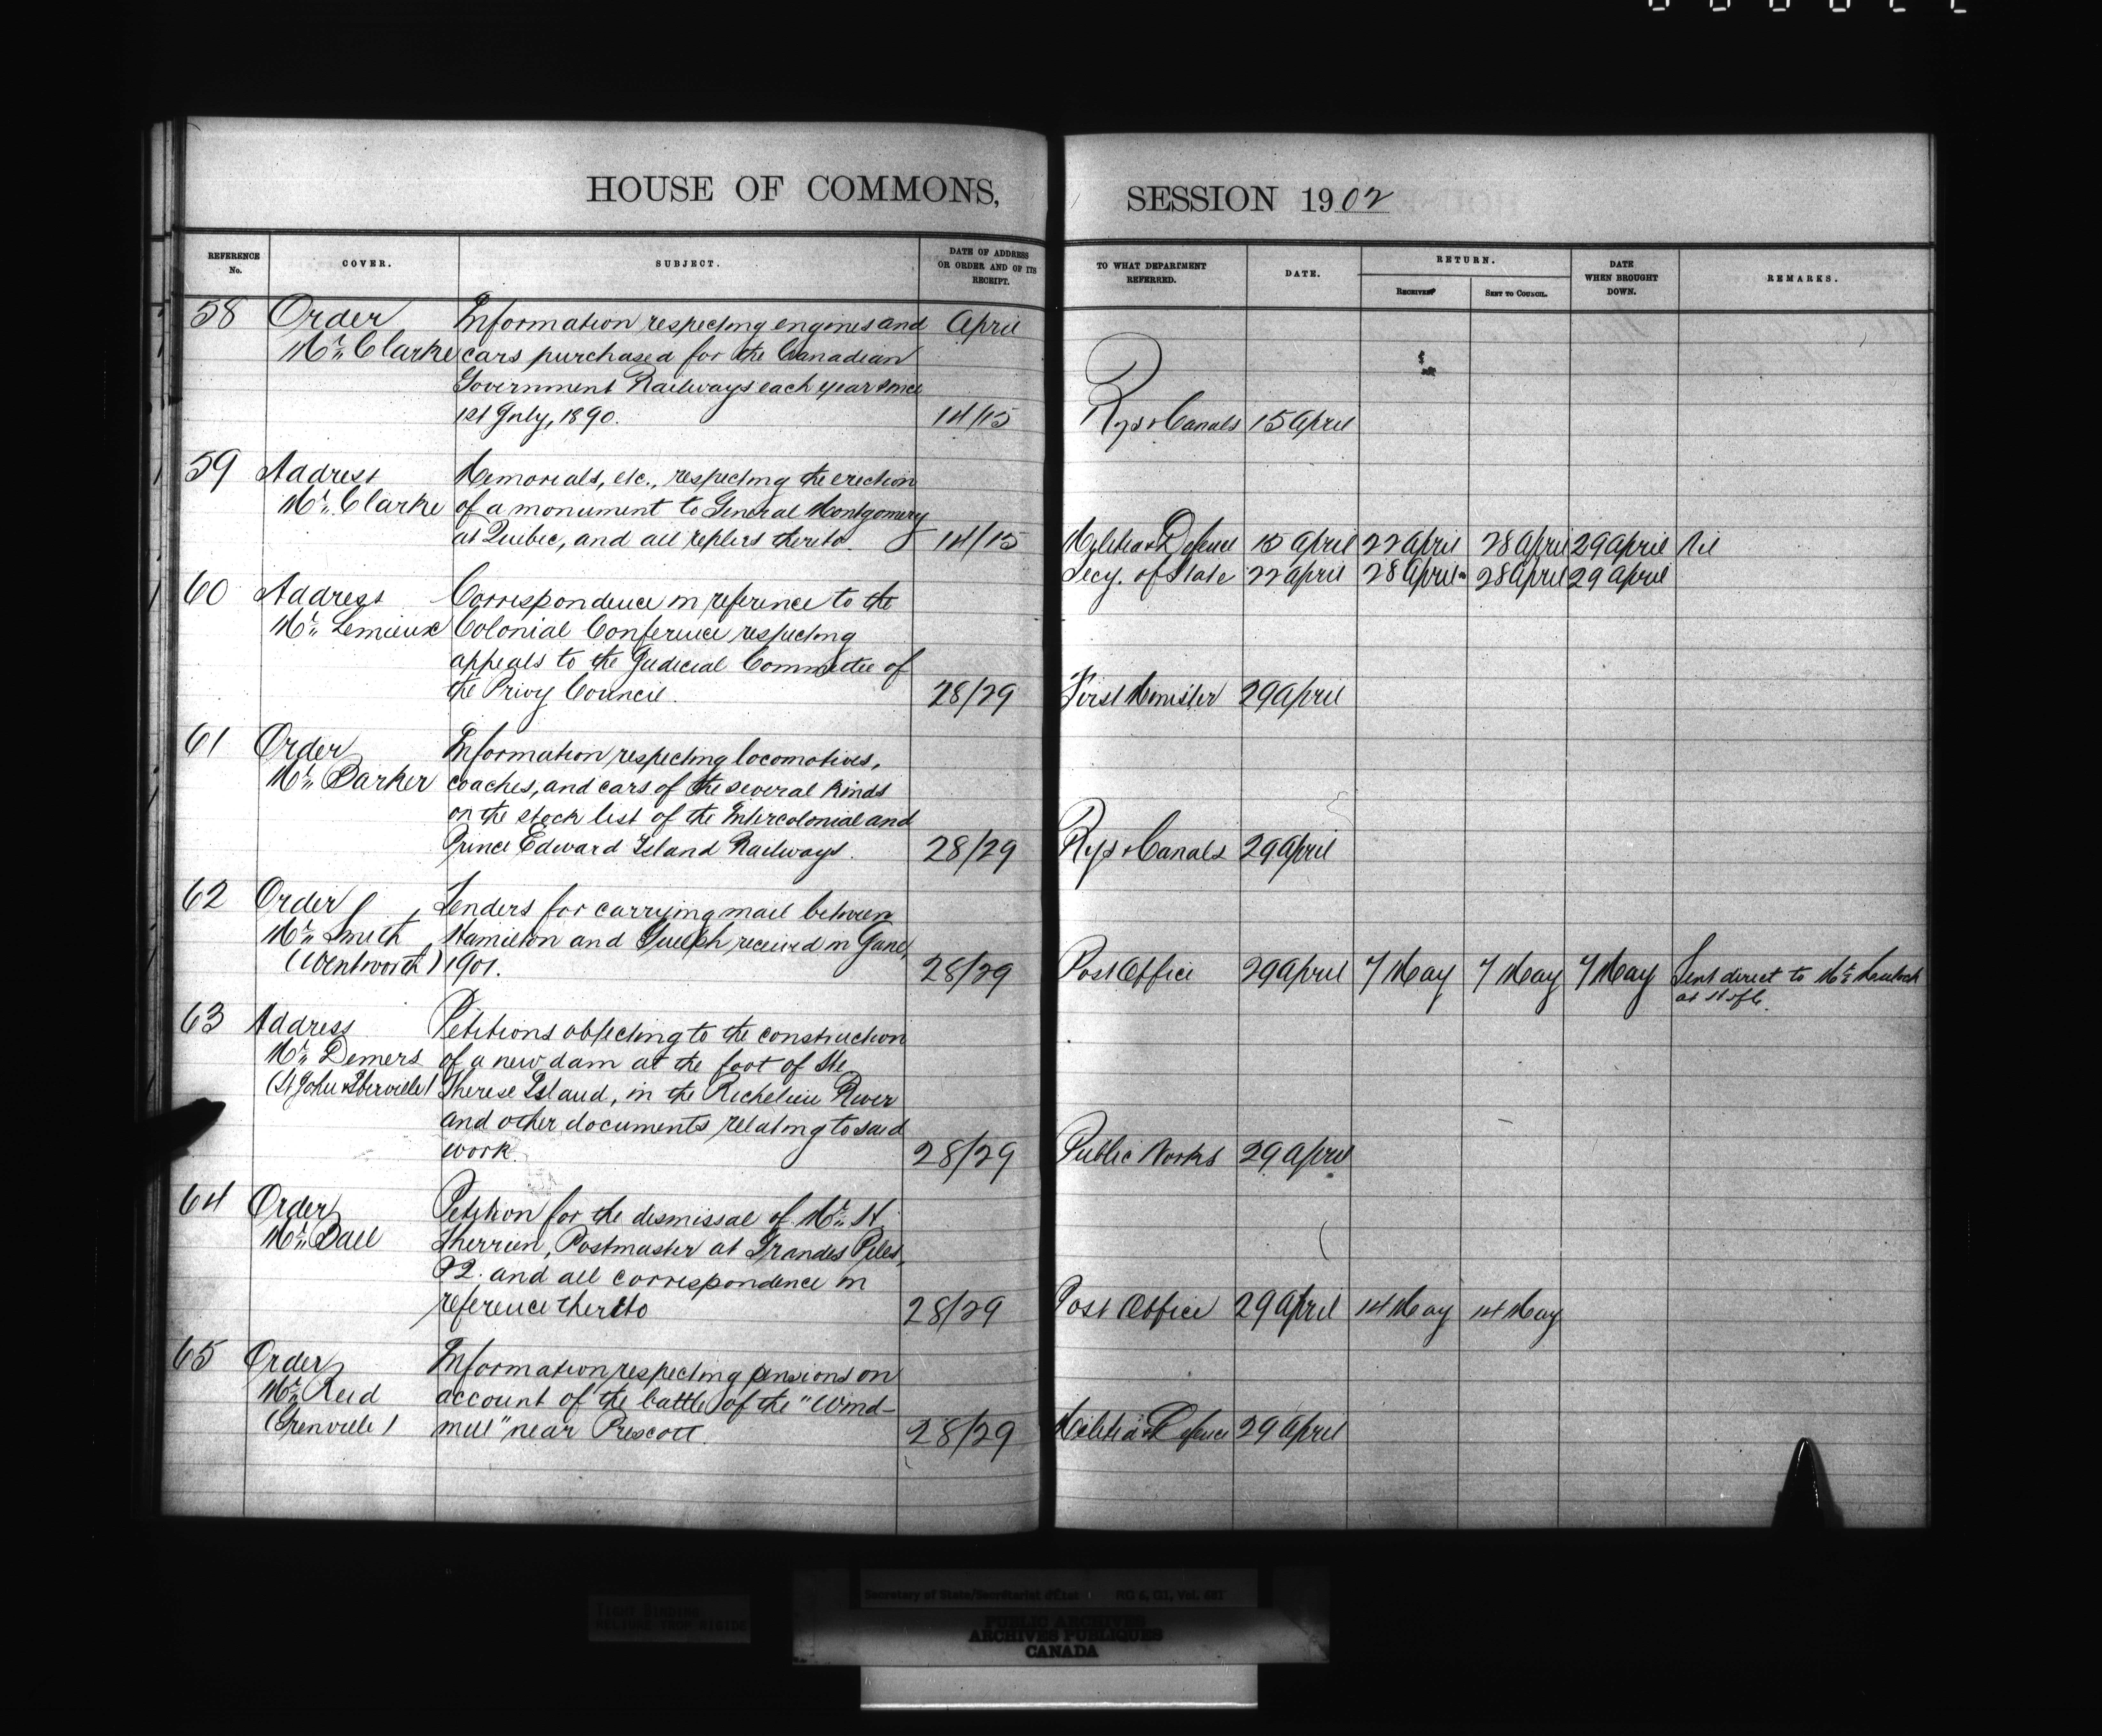 HOUSE OF COMMONS,
REFERENCE No.
COVER.
SUBJECT.
DATE OF ADDRESS OR ORDER AND OF ITS RECEIPT.
58 Order Information respecting engines and April
Mr. Clarke cars purchased for the Canadian
Government Railways each year since
1st July, 1890. 14/15
59 Address Memorials, etc., respecting the erection
Mr. Clarke of a monument to General Montgomery
at Quebec, and all replies thereto. 14/15
60 Address Correspondence in reference to the
Mr. Lemieux Colonial Conference respecting
appeals to the Judicial Committee of
the Privy Council. 28/29
61 Order Information respecting locomotives,
Mr. Barker coaches, and cars of the several kinds
on the stock list of the Intercolonial and
Prince Edward Island Railways. 28/29
62 Order Tenders for carrying mail between
Mr. Smith Hamilton and Guelph received in June,
(Wentworth) 1901. 28/29
63 Address Petitions objecting to the construction
Mr. Demers of a new dam at the foot of Ste
(St John & Iberville) Therese Island, in the Richelieu River
and other documents relating to said
work. 28/29
64 Order Petition for the dismissal of Mr. St.
Mr. Ball Therrien, Postmaster at Grandes Piles,
P2. and all correspondence in
reference thereto 28/29
65 Order Information respecting pensions on
Mr. Reid account of the battle of the "Wind-
(Grenville) mill" near Prescott. 28/29
SESSION 1902
TO WHAT DEPARTMENT REFERRED.
DATE.
RETURN.
RECEIVED
SENT TO COUNCIL.
DATE WHEN BROUGHT DOWN.
REMARKS.
Rys & Canals 15 April
Militia & Defence 15 April 22 April 28 April 29 April Nil
Secy. of State 22 April 28 April 28 April 29 April
First Minister 29 April
Rys & Canals 29 April
Post Office 29 April 7 May 7 May 7 May Sent direct to Mr. Mulock
at H of C.
Public Works 29 April
Post Office 29 April 14 May 14 May
Militia & Defence 29 April
TIGHT BINDING
RELIURE TROP RIGIDE
Secretary of State/Secrétariat d'État RG 6, G1, Vol.
PUBLIC ARCHIVES
ARCHIVES PUBLIQUES
CANADA